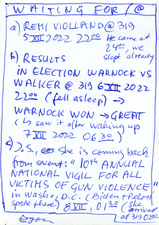 WAITING FOR / @
a) REMI VIOLLAND @ 319
5 XII 2022 2200 He came at
24th, we
slept already
b) RESULTS
IN ELECTION WARNOCK VS
WALKER @ 319 6 XII 2022
2200 (fall asleep) →
WARNOCK WON → GREAT
(I saw it after waking up
7 XII 2022 0630)
c) J.S., she is coming back
from event: "10th ANNUAL
NATIONAL VIGIL FOR ALL
VICTIMS OF GUN VIOLENCE"
in Wash., D.C. (Biden + Pelosi
spoke there) 8 XII, 0132 (she
arrived
at 319 020